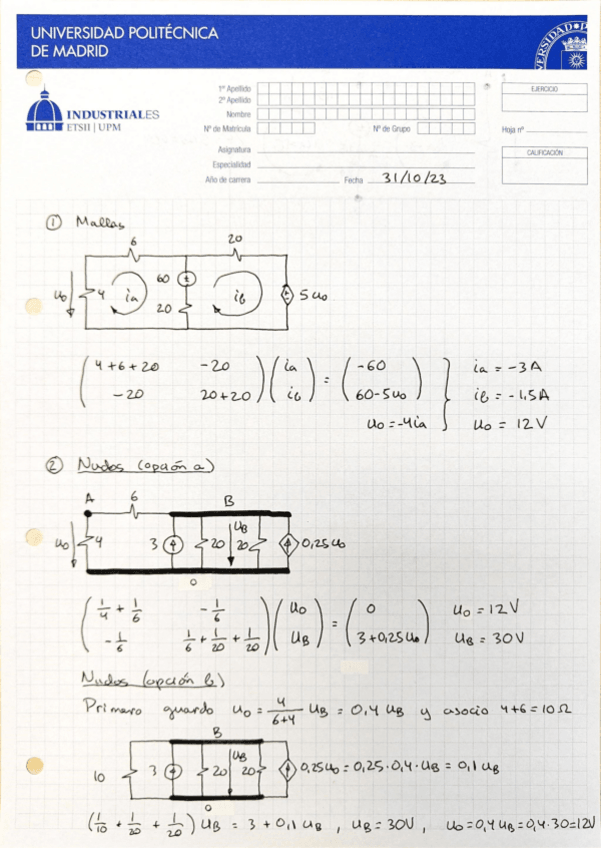 UNIVERSIDAD POLITÉCNICA
DE MADRID
INDUSTRIALES
ETSII | UPM
1º Apellido
2º Apellido
Nombre
Nº de Matrícula
Nº de Grupo
Asignatura
Especialidad
Año de carrera
Fecha 31/10/23
EJERCICIO
Hoja nº
CALIFICACIÓN
① Mallas
6 20
uo 4 ia 60 20 ib 5uo
( 4+6+20 -20 ) ( ia ) = ( -60 ) } ia = -3A
( -20 20+20 ) ( ib ) = ( 60-5uo ) } ib = -1,5A
uo = -4ia } uo = 12V
② Nudos (opción a)
A 6 B
uo 4 3 20 uB 20 0,25uo
0
( 1/4 + 1/6 -1/6 ) ( uo ) = ( 0 ) uo = 12V
( -1/6 1/6 + 1/20 + 1/20 ) ( uB ) = ( 3+0,25uo ) uB = 30V
Nudos (opción b)
Primero guardo uo = 4/(6+4) uB = 0,4 uB y asocio 4+6=10Ω
B
10 3 20 uB 20 0,25uo = 0,25·0,4·uB = 0,1 uB
0
(1/10 + 1/20 + 1/20) uB = 3 + 0,1 uB , uB = 30V , uo = 0,4uB = 0,4·30=12V